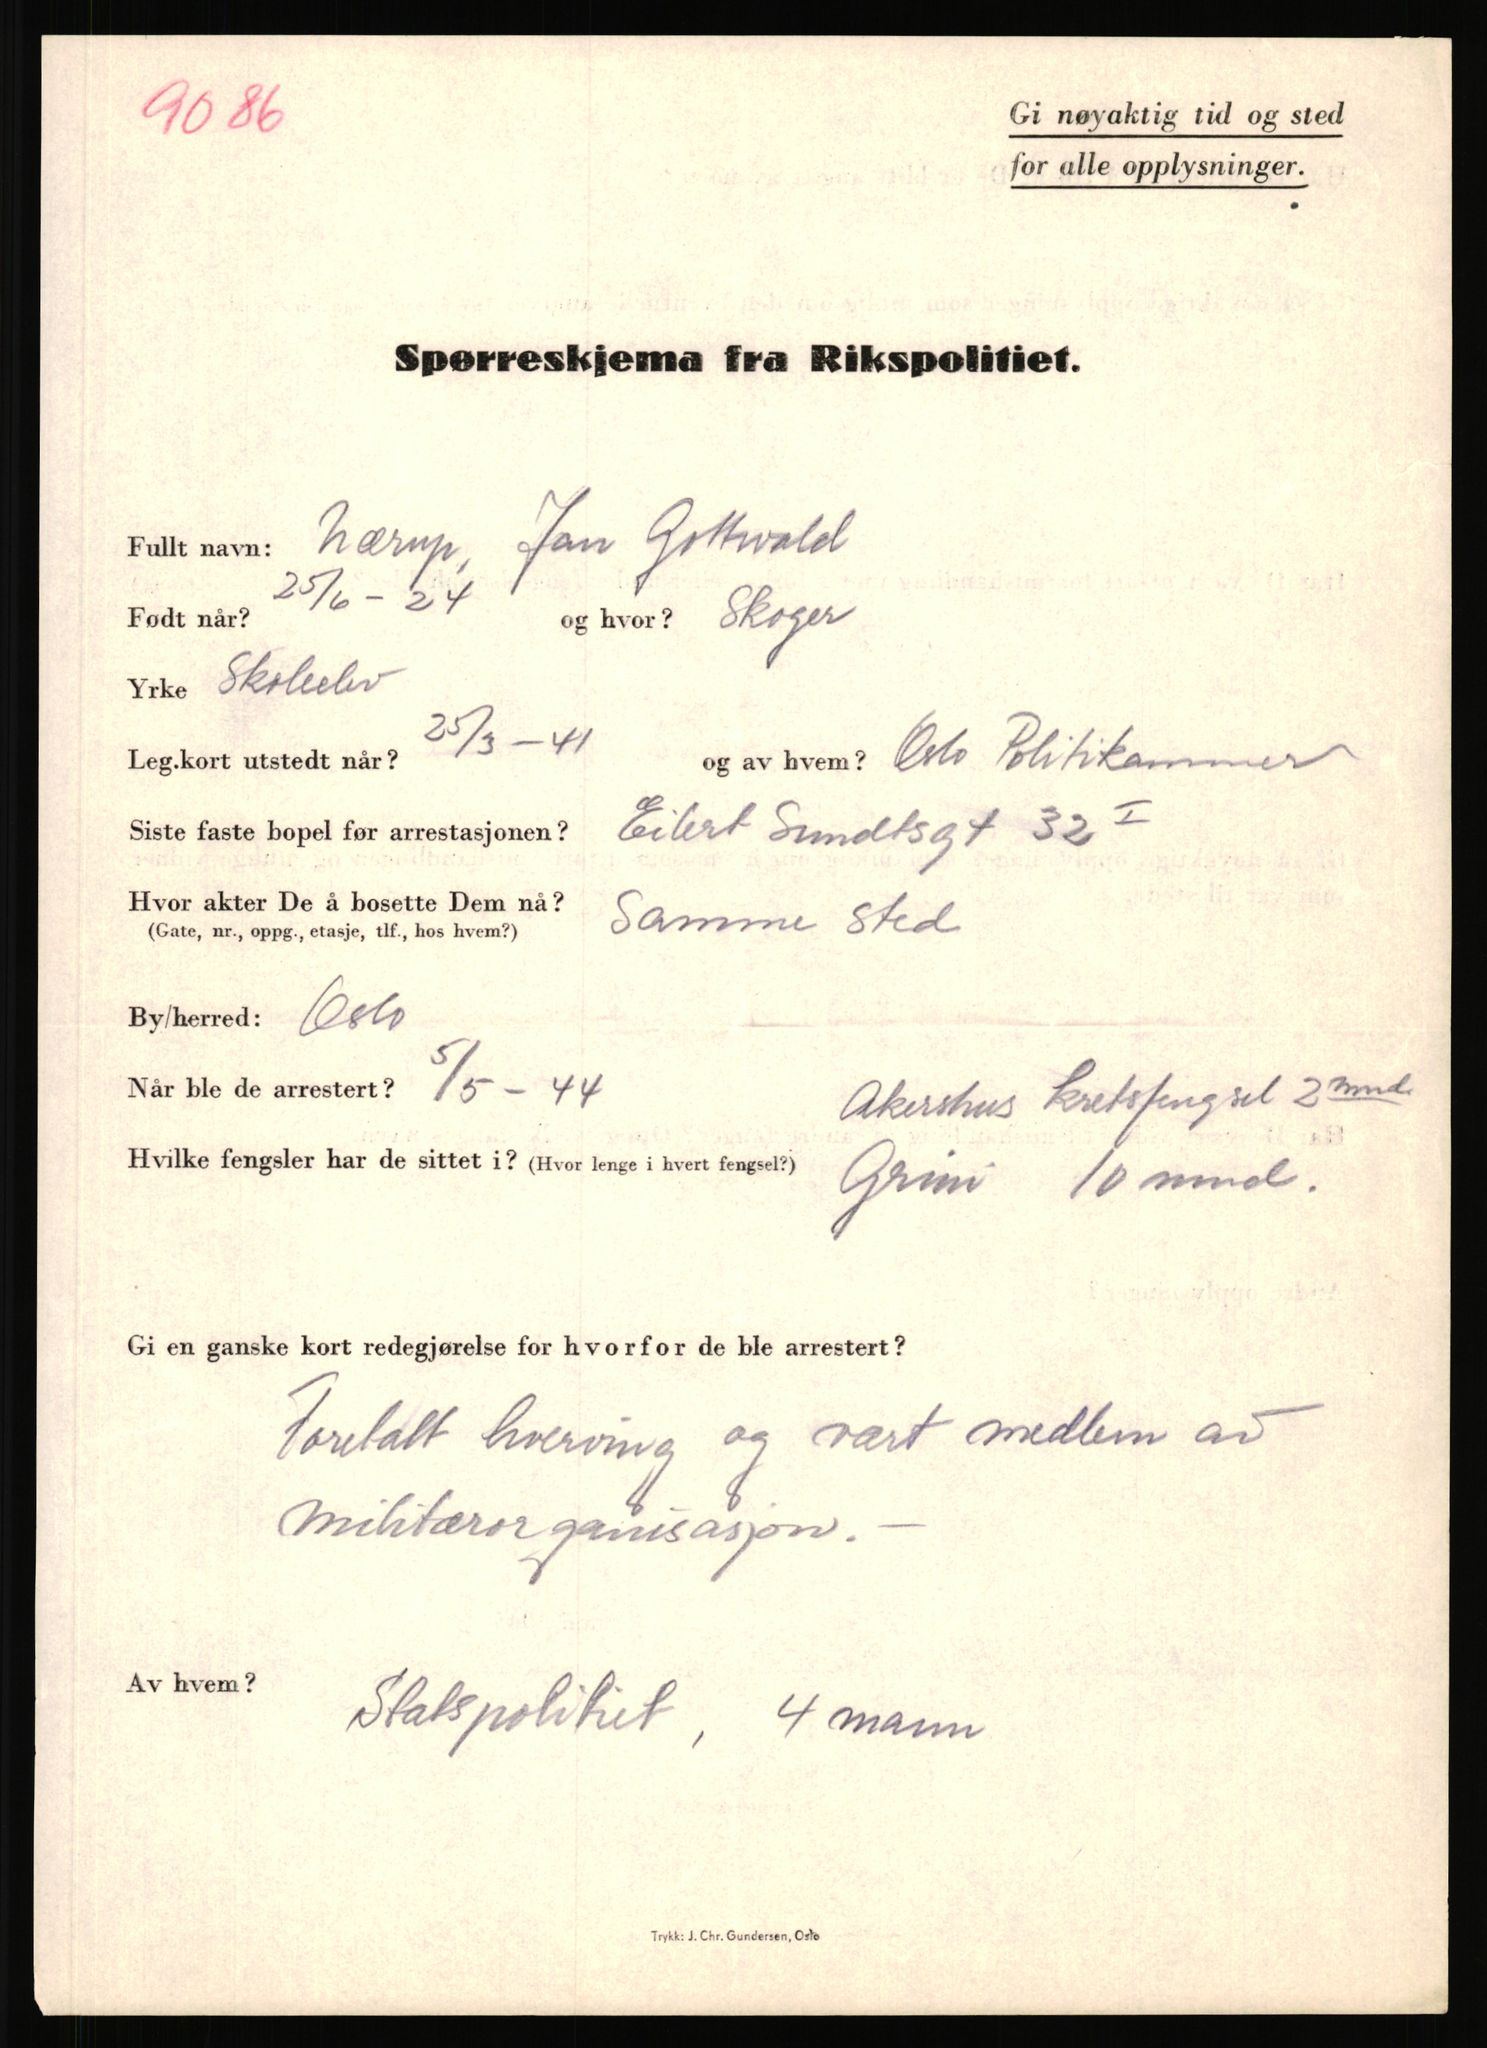 9086
Gi nøyaktig tid og sted
for alle opplysninger.
Spørreskjema fra Rikspolitiet.
Fullt navn: Nærup, Jan Gottwald
Født når? 25/6 - 24 og hvor? Skoger
Yrke Skoleelev
Leg.kort utstedt når? 25/3 - 41 og av hvem? Oslo Politikammer
Siste faste bopel før arrestasjonen? Eilert Sundtsgt 32 I
Hvor akter De å bosette Dem nå? Samme sted
(Gate, nr., oppg., etasje, tlf., hos hvem?)
By/herred: Oslo
Når ble de arrestert? 5/5 - 44
Akershus kretsfengsel 2 mnd.
Hvilke fengsler har de sittet i? (Hvor lenge i hvert fengsel?) Grini 10 mnd.
Gi en ganske kort redegjørelse for hvorfor de ble arrestert?
Foretatt hverving og vært medlem av
militærorganisasjon. -
Av hvem? Statspolitiet, 4 mann
Trykk: J. Chr. Gundersen, Oslo